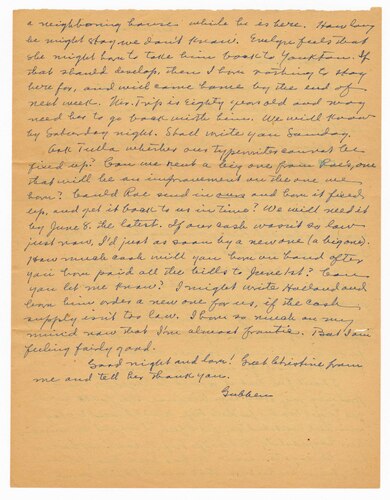 a neighboring house while he is here. How long
he might stay we don't know. Evelyn feels that
she might have to take him back to Yankton. If
that should develop, then I have nothing to stay
here for, and will come home by the end of
next week. Mrs. Trips is eighty years old and may
need her to go back with him. We will know
by Saturday night. Shall write you Sunday.
Ask Tulla whether our typewriter cannot be
fixed up? Can we rent a big one from Rae's, one
that will be an improvement on the one we
have? Could Rae send in ours and have it fixed
up, and get it back to us in time? We will need it
by June 8, the latest. If our cash wasn't so low
just now, I'd just as soon buy a new one (a big one).
How much cash will you have on hand after
you have paid all the bills to June 1st? Can
you let me know? I might write Holland and
have him order a new one for us, if the cash
supply isn't too low. I have so much on my
mind now that I'm almost frantic. But I am
feeling fairly good.
Good night and love! Greet Christine from
me and tell her thank you.